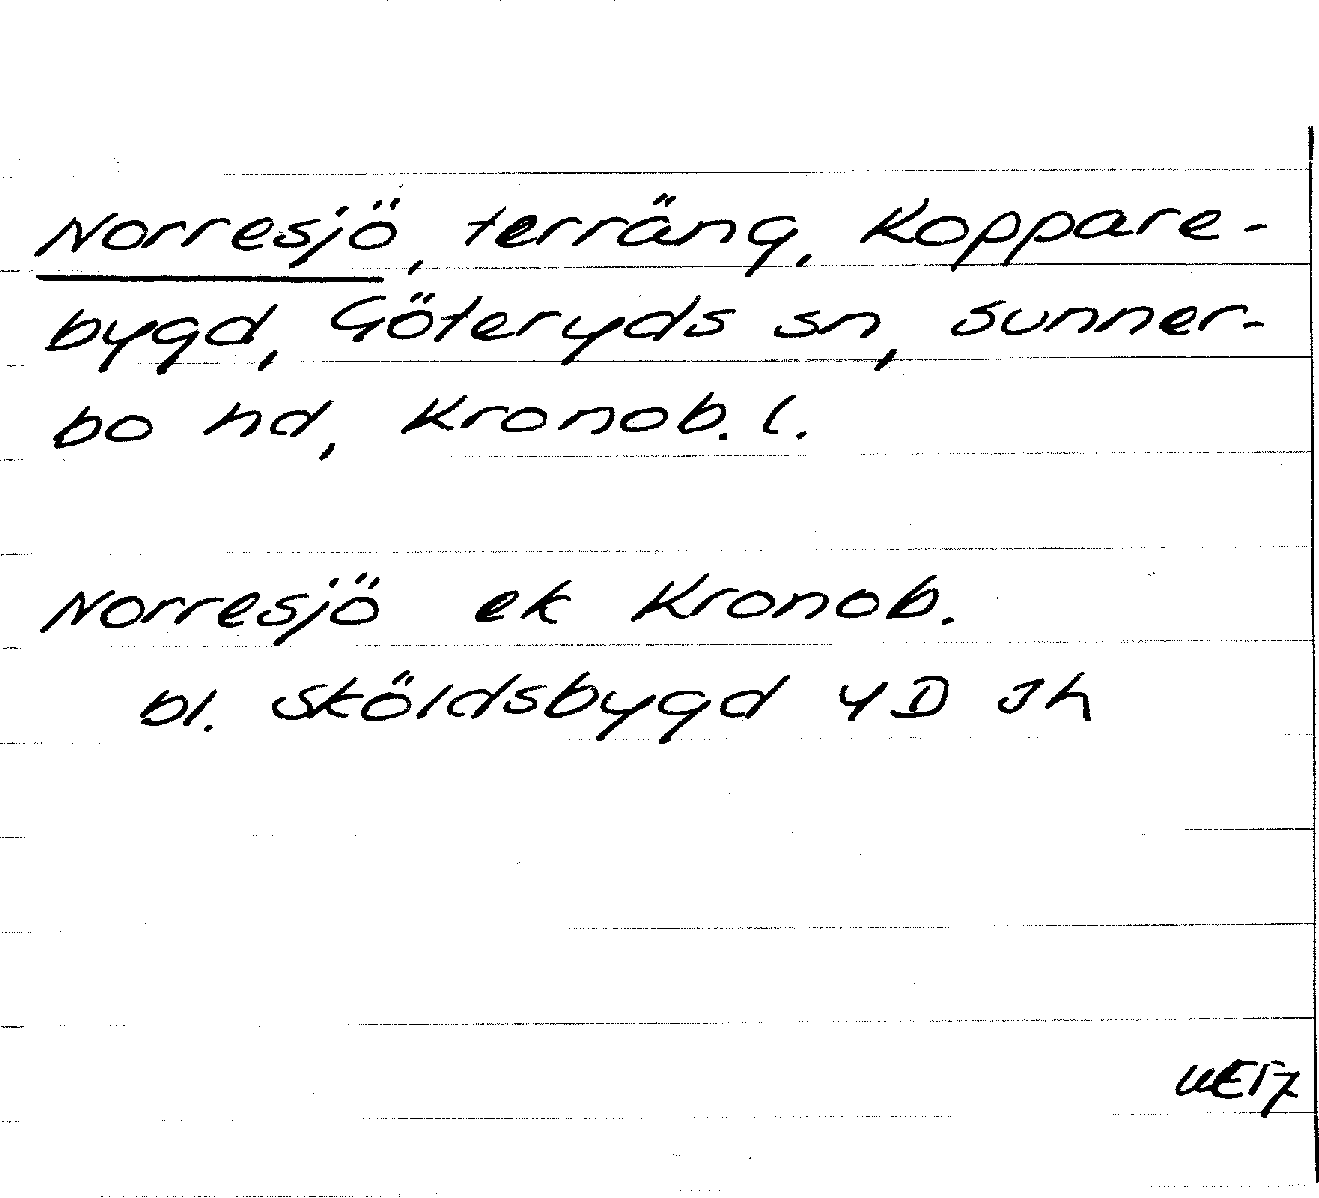 Norresjö, terräng, Koppare-
bygd, Göteryds sn, Sunner-
bo hd, Kronob. l.
Norresjö ek Kronob.
bl. Sköldsbygd 4D Jh